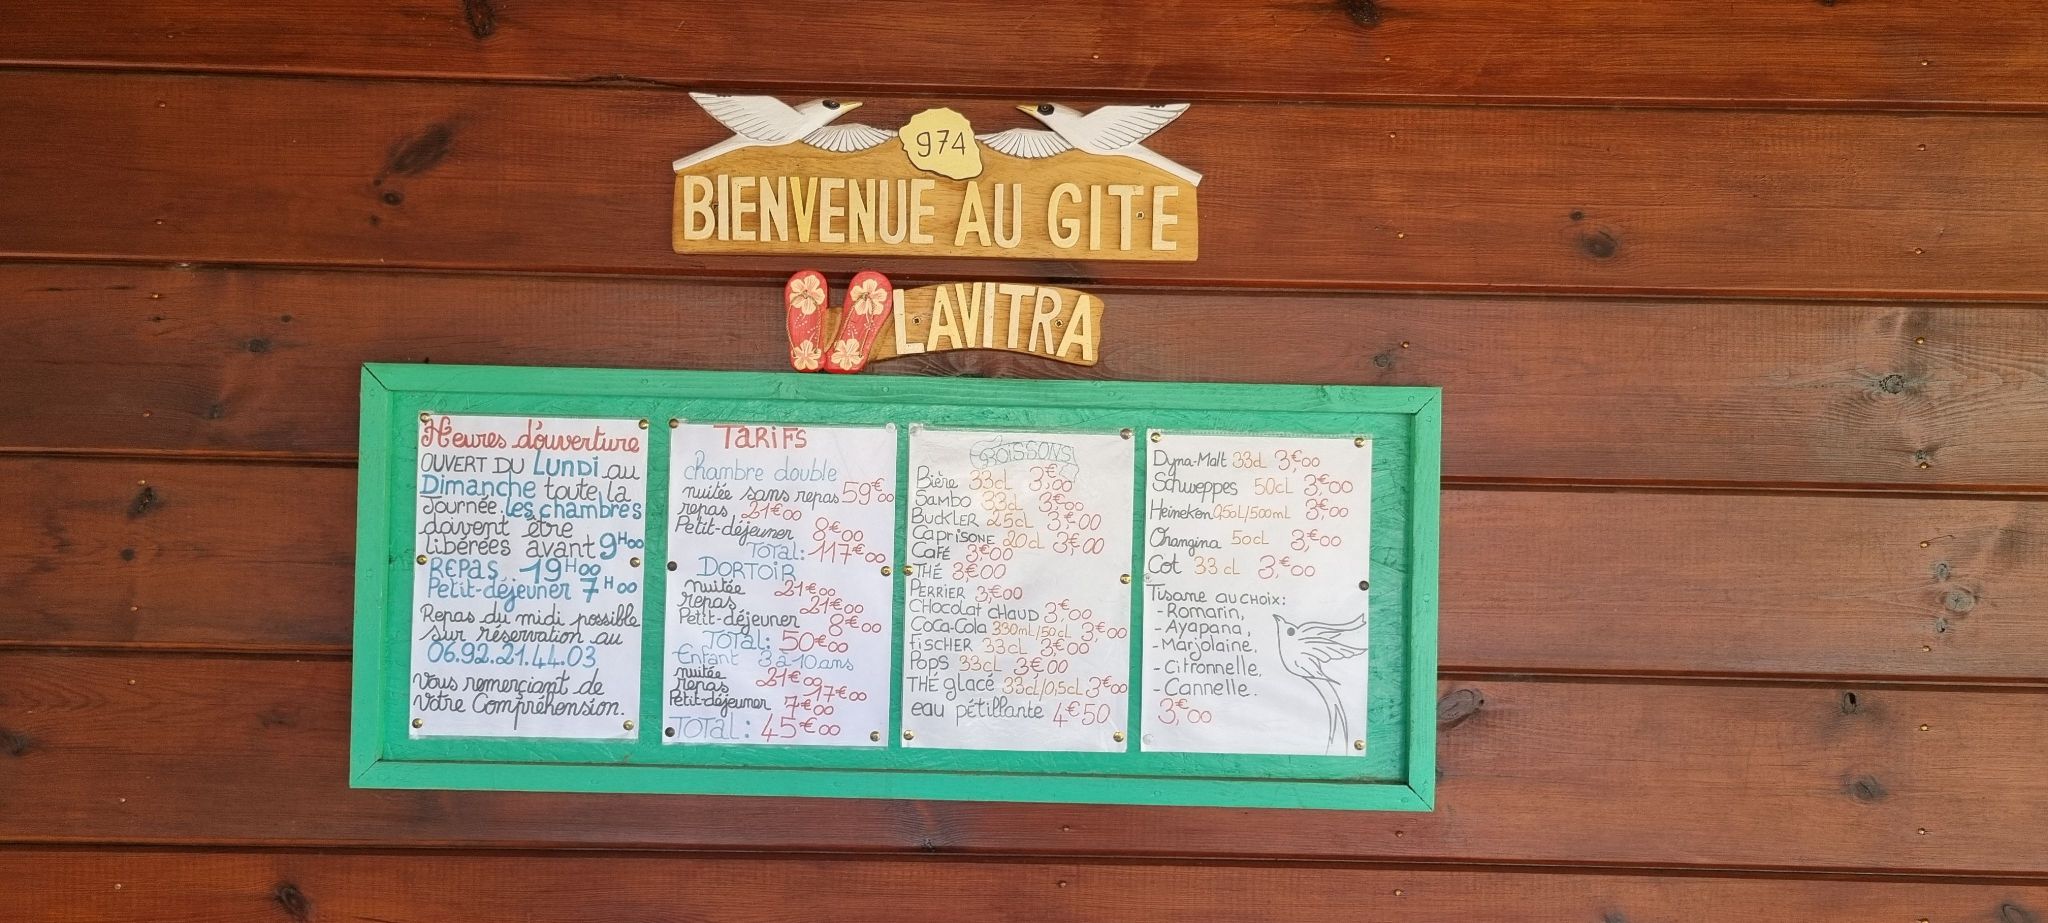 974
BIENVENUE AU GITE
LAVITRA
Heures d'ouverture
OUVERT DU LUNDI au
Dimanche toute la
Journée. les chambres
doivent être
libérées avant 9H00
REPAS.. 19H00
Petit-déjeuner 7H00
Repas du midi possible
sur réservation au
06.92.21.44.03
Vous remerciant de
Votre Compréhension.
TARIFS
chambre double
nuitée sans repas 59€00
repas 21€00
Petit-déjeuner 8€00
Total: 117€00
DORTOIR
nuitée 21€00
repas 21€00
Petit-déjeuner 8€00
TOTAL: 50€00
Enfant 3 à 10 ans
nuitée 21€00
repas 17€00
Petit-déjeuner 7€00
TOTAL: 45€00
BOISSONS
Bière 33cl 3€00
Sambo 33cl 3€00
BUCKLER 25cl 3€00
CapriSONE 20cl 3€00
Café 3€00
THÉ 3€00
PERRIER 3€00
CHocolat CHAUD 3€00
Coca-Cola 330mL/50cL 3€00
FiSCHER 33cl 3€00
POPS 33cL 3€00
THÉ glacé 33cl/0,5cL 3€00
eau pétillante 4€50
Dyna-Malt 33cL 3€00
Schweppes 50cL 3€00
Heineken 0,50L/500mL 3€00
Orangina 50cl 3€00
Cot 33 cL 3€00
Tisane au CHOIX:
- Romarin,
- Ayapana,
- Marjolaine,
- Citronnelle,
- Cannelle.
3€00